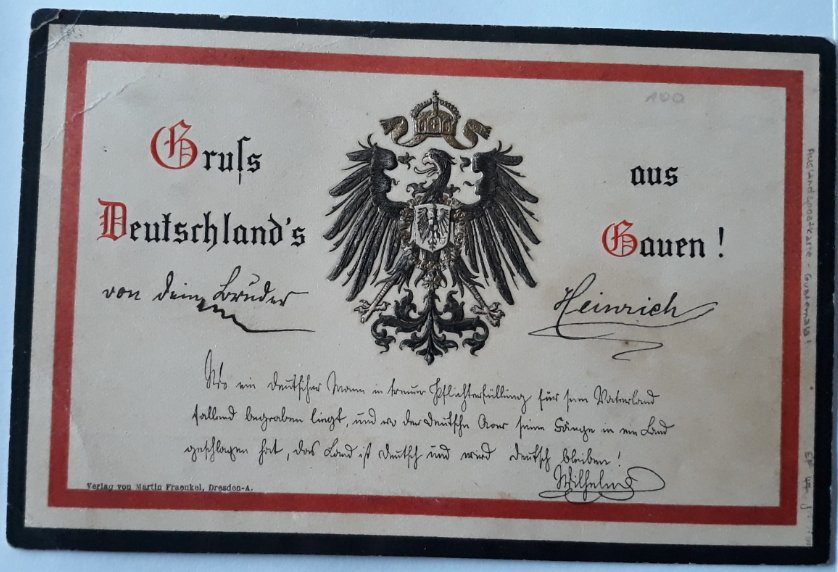 Gruſs aus
Deutschland's Gauen !
von dein Bruder Heinrich
Wo ein deutscher Mann in treuer Pflichterfüllung für sein Vaterland
fallend begraben liegt, und wo der deutsche Aar seine Fänge in ein Land
geschlagen hat, das Land ist deutsch und wird deutsch bleiben!
Wilhelm
Verlag von Martin Fraenkel, Dresden-A.
100
Auslandspostkarte - Guatemala !